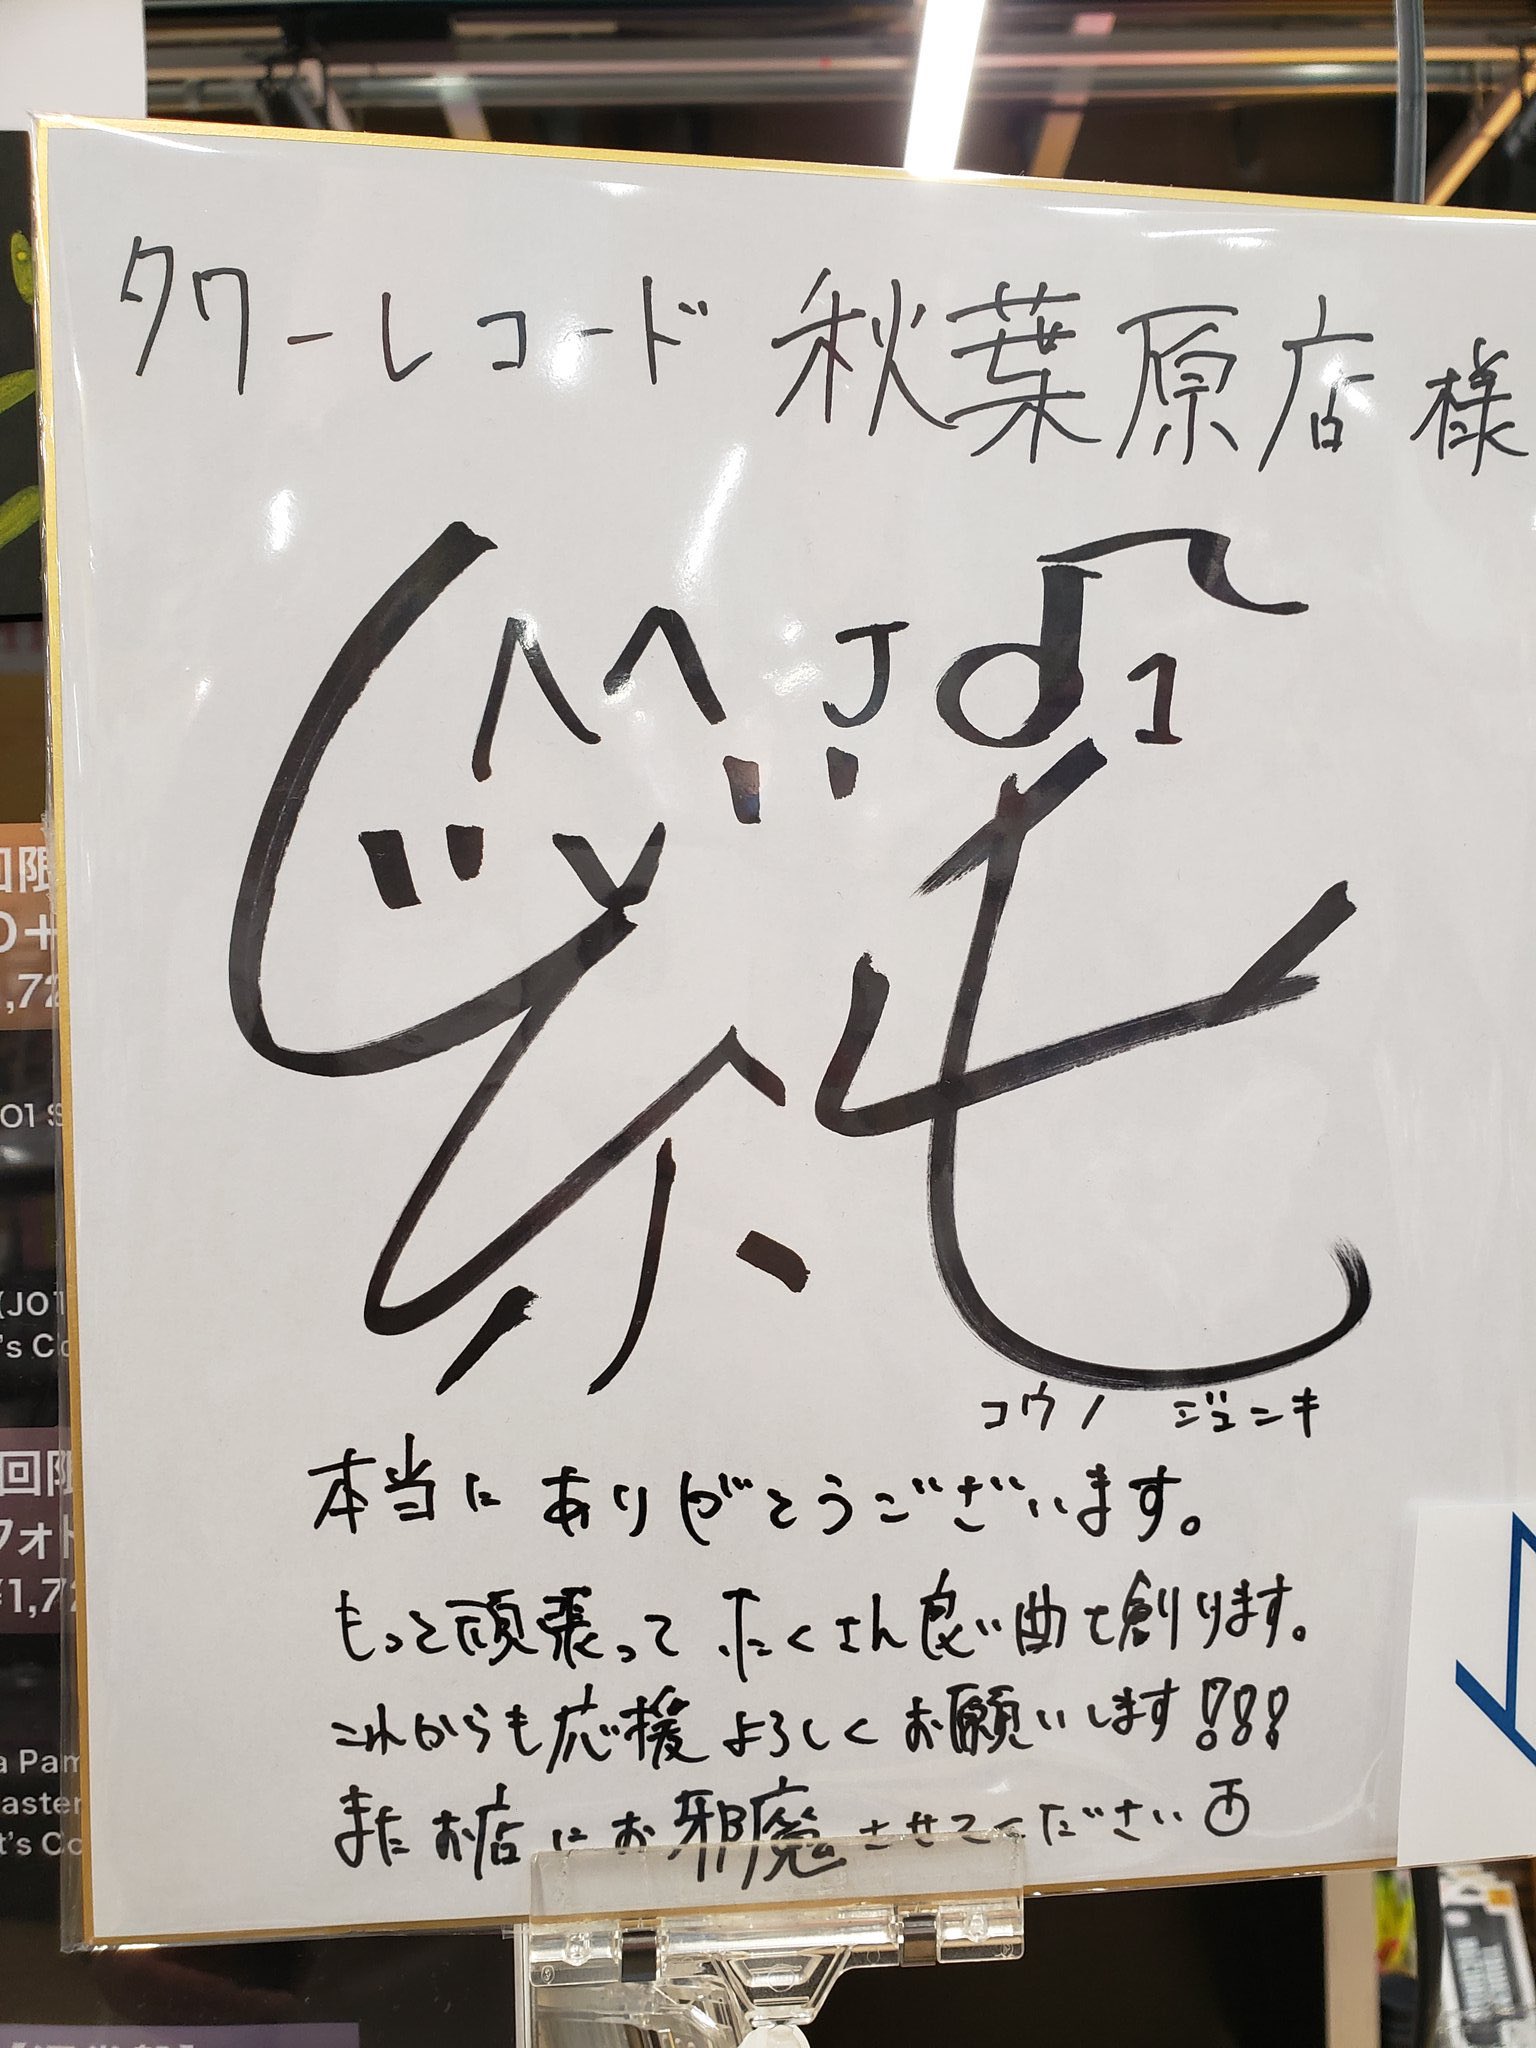 タワーレコード 秋葉原店 様
JO1
純
コウノ ジュンキ
本当にありがとうございます。
もっと頑張って たくさん良い曲を創ります。
これからも応援よろしくお願いします!!!
またお店にお邪魔させてください
回限
0+
,72
(JO1
's Co
回限
フォト
¥1,72
a Pam
aster
t's Co